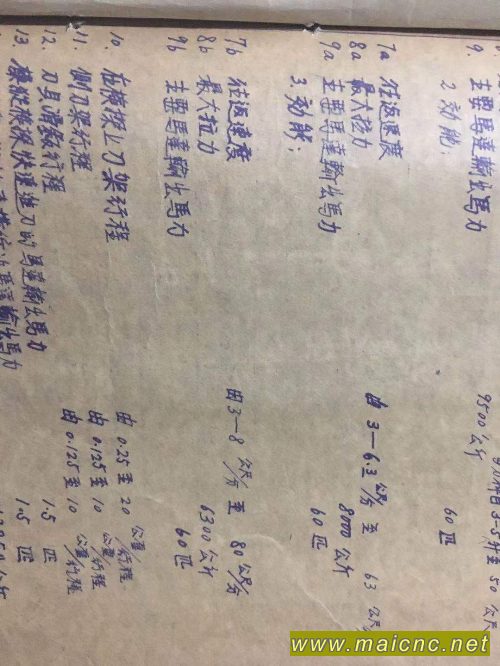 9. 主要馬達輸出馬力 60 匹
2. 功能:
7a 往返速度 由 3—6.3 公尺/分 至 63 公尺
8a 最大拉力 8000 公斤
9a 主要馬達輸出馬力 60 匹
3. 功能:
7b 往返速度 由 3—8 公尺/分 至 80 公尺/分
8b 最大拉力 6300 公斤
9b 主要馬達輸出馬力 60 匹
10. 在横樑上刀架行程 由 0.25 至 20 公厘/行程
11. 側刀架行程 由 0.125 至 10 公厘/行程
12. 刀具 行程 由 0.125 至 10 公厘/行程
13. 快速進刀的馬達輸出馬力 1.5 匹
馬達輸出馬力 1.5 匹
9500 公斤
www.maicnc.net